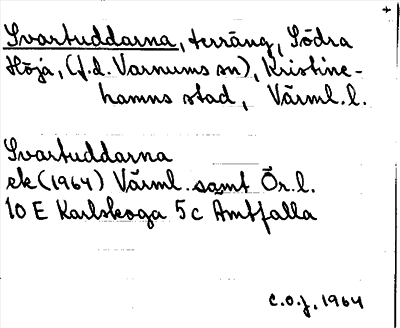 +
Svartuddarna, terräng, Södra
Höja, (f.d. Varnums sn), Kristine-
hamns stad, Värml. l.
Svartuddarna
ek (1964) Värml. samt Ör. l.
10 E Karlskoga 5 c Ämtfalla
C.O.J. 1964